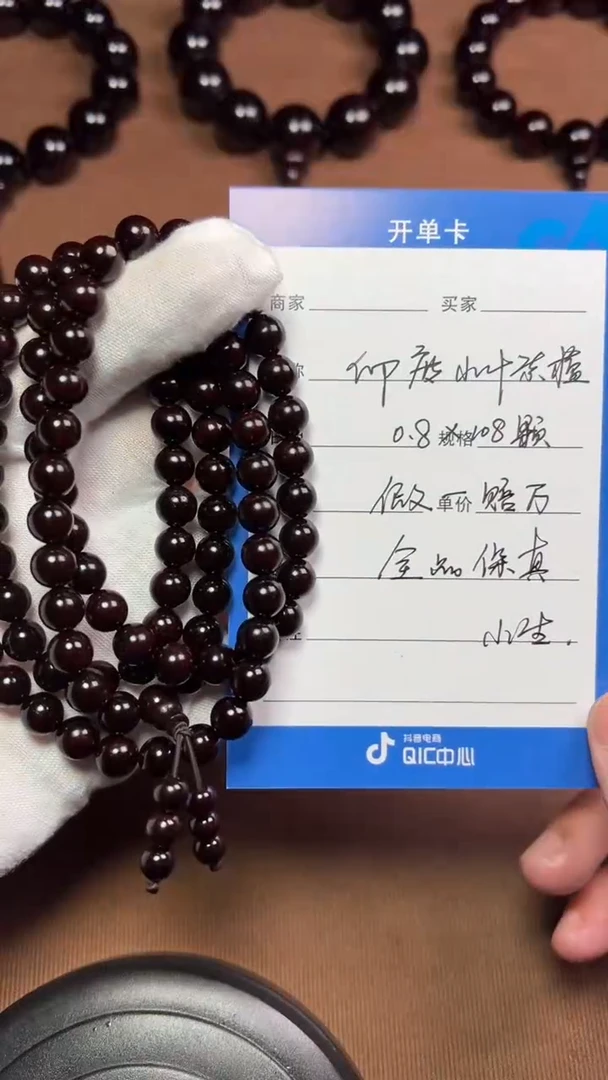 开单卡
商家 买家
称 印度小叶紫檀
0.8 规格 108颗
假一 单价 赔万
全品保真
小生.
抖音电商
QIC中心